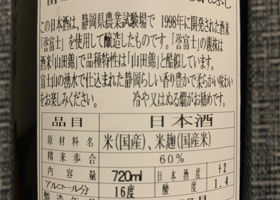 この日本酒は、静岡県農業試験場で 1998年に開発された酒米
「誉富士」を使用して醸造したものです。「誉富士」の親株は
酒米「山田錦」で品種特性は「山田錦」と酷似しています。
富士山の湧水で仕込まれた静岡らしい香り豊かで柔らかい味わい
をお楽しみください。 冷や又はぬる燗がお薦めです。
品目 日本酒
原材料名 米(国産)、米麹(国産米)
精米歩合 60%
内容量 720ml 日本酒度 +2
アルコール分 16度 酸度 1.4